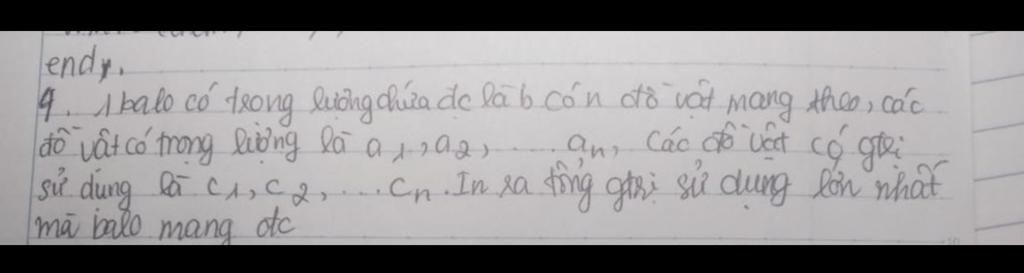 end;
9. 1 balo có trọng lượng chứa đc là b có n đồ vật mang theo, các
đồ vật có trọng lượng là a1, a2, ... an, các đồ vật có gtrị
sử dụng là c1, c2, ... cn. In ra tổng gtrị sử dụng lớn nhất
mà balo mang đc